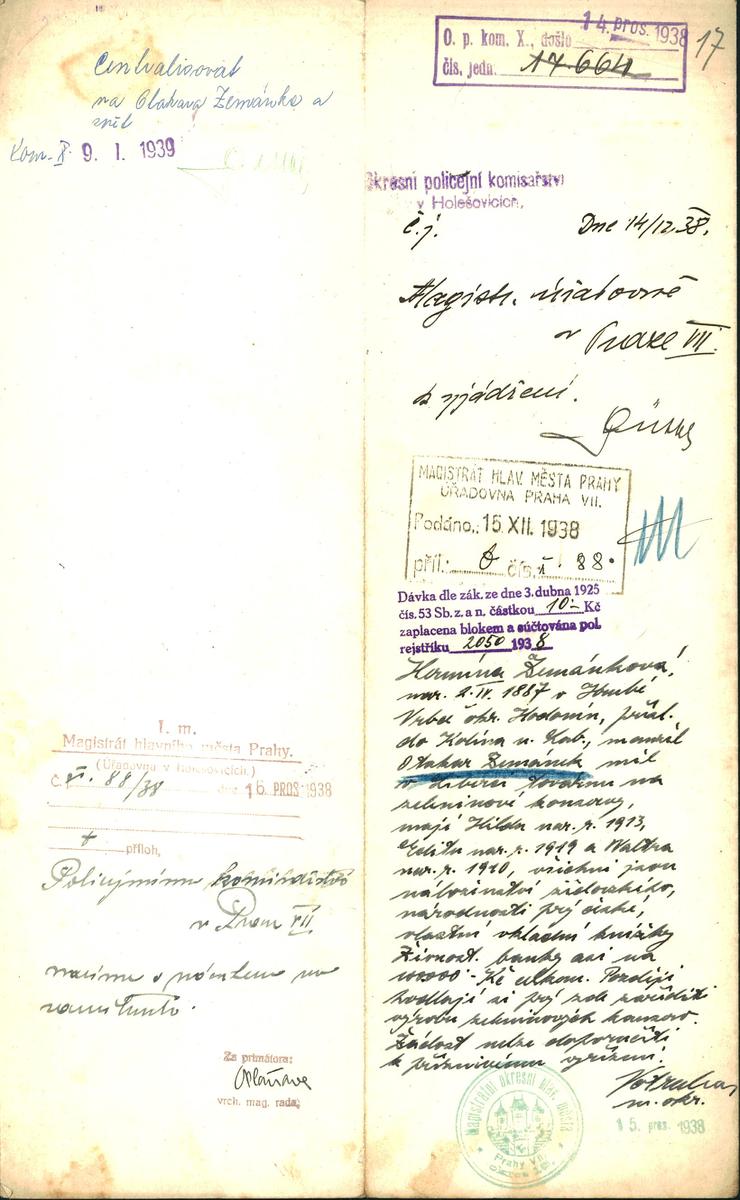 Centralisovat
na Otakara Zemánka a
Kom. X. 9. I. 1939
14. pros. 1938
17
O. p. kom. X., došlo
čís. jedn. 17664
Okresní policejní komisařství
v Holešovicích,
č. j. Dne 14/12.38.
Magistr. úřadovně
v Praze VII.
k vyjádření.
MAGISTRÁT HLAV. MĚSTA PRAHY
ÚŘADOVNA PRAHA VII.
Podáno: 15 XII. 1938
příl.: čís. 88.
Dávka dle zák. ze dne 3. dubna 1925
čís. 53 Sb. z. a n. částkou 10- Kč
zaplacena blokem a súčtována pol.
rejstříku 2050 1938
Hermína Zemánková,
nar. 2. IV. 1887 v Hrubé
Vrbce okr. Hodonín, přísl.
do Kolína n. Lab., manžel
Otakar Zemánek měl
v Liberci továrnu na
zeleninové konservy,
mají Hildu nar. r. 1913,
Editu nar. r. 1919 a Waltra
nar. r. 1910, všichni jsou
náboženství židovského,
národnosti prý české,
vlastní vkladní knížky
Živnost. banky asi na
100000 - Kč celkem. Později
hodlají si prý zde zaříditi
výrobu zeleninových konserv.
Žádost nelze doporučiti
k příznivému vyřízení.
15. pros. 1938
Magistrátní okresní hlav. města
Prahy VII
I. m.
Magistrát hlavního města Prahy.
(Úřadovna v Holešovicích.)
Č. VI. 88/38 dne 16 PROS 1938
příloh,
Policejnímu komisařství
v Praze VII
Za primátora:
vrch. mag. rada;